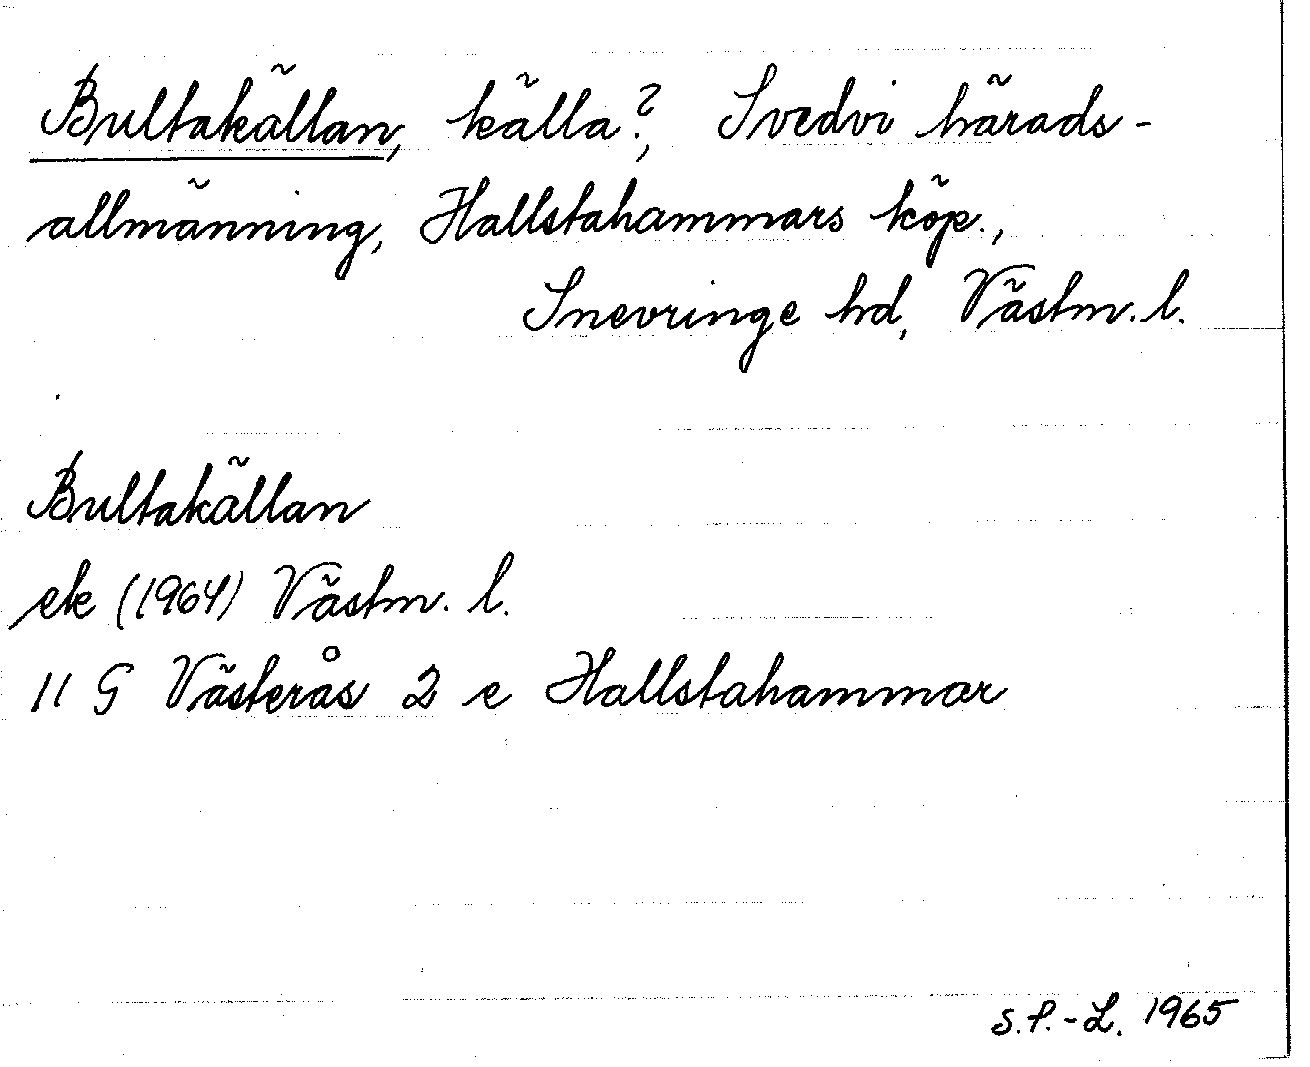 Bultakällan, källa?, Svedvi härads-
allmänning, Hallstahammars köp.,
Snevringe hd, Västm. l.
Bultakällan
ek (1964) Västm. l.
11 G Västerås 2 e Hallstahammar
S.P.-L. 1965